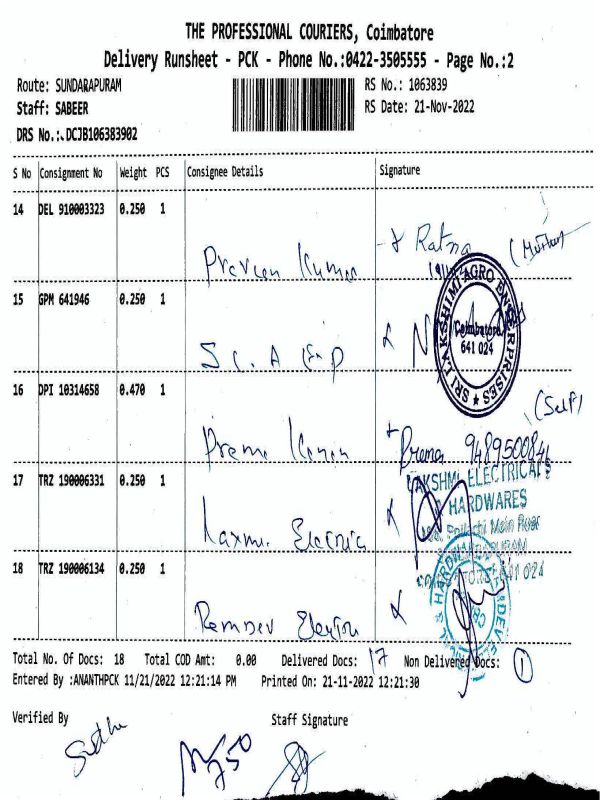 THE PROFESSIONAL COURIERS, Coimbatore
Delivery Runsheet - PCK - Phone No.:0422-3505555 - Page No.:2
Route: SUNDARAPURAM
RS No.: 1063839
Staff: SABEER
RS Date: 21-Nov-2022
DRS No.:.DCJB106383902
S No Consignment No Weight PCS Consignee Details Signature
14 DEL 910003323 0.250 1
Praveen Kumar Ratna
15 GPM 641946 0.250 1
SRI LAKSHMI AGRO ENTERPRISES
Coimbatore
641 024
16 DPI 10314658 0.470 1
(Self)
Prema Prema 9489500846
17 TRZ 190006331 0.250 1
LAKSHMI ELECTRICALS
& HARDWARES
Main Road
641 024
Laxmi Electric
18 TRZ 190006134 0.250 1
Total No. Of Docs: 18 Total COD Amt: 0.00 Delivered Docs: 17 Non Delivered Docs: 1
Entered By :ANANTHPCK 11/21/2022 12:21:14 PM Printed On: 21-11-2022 12:21:30
Verified By Staff Signature